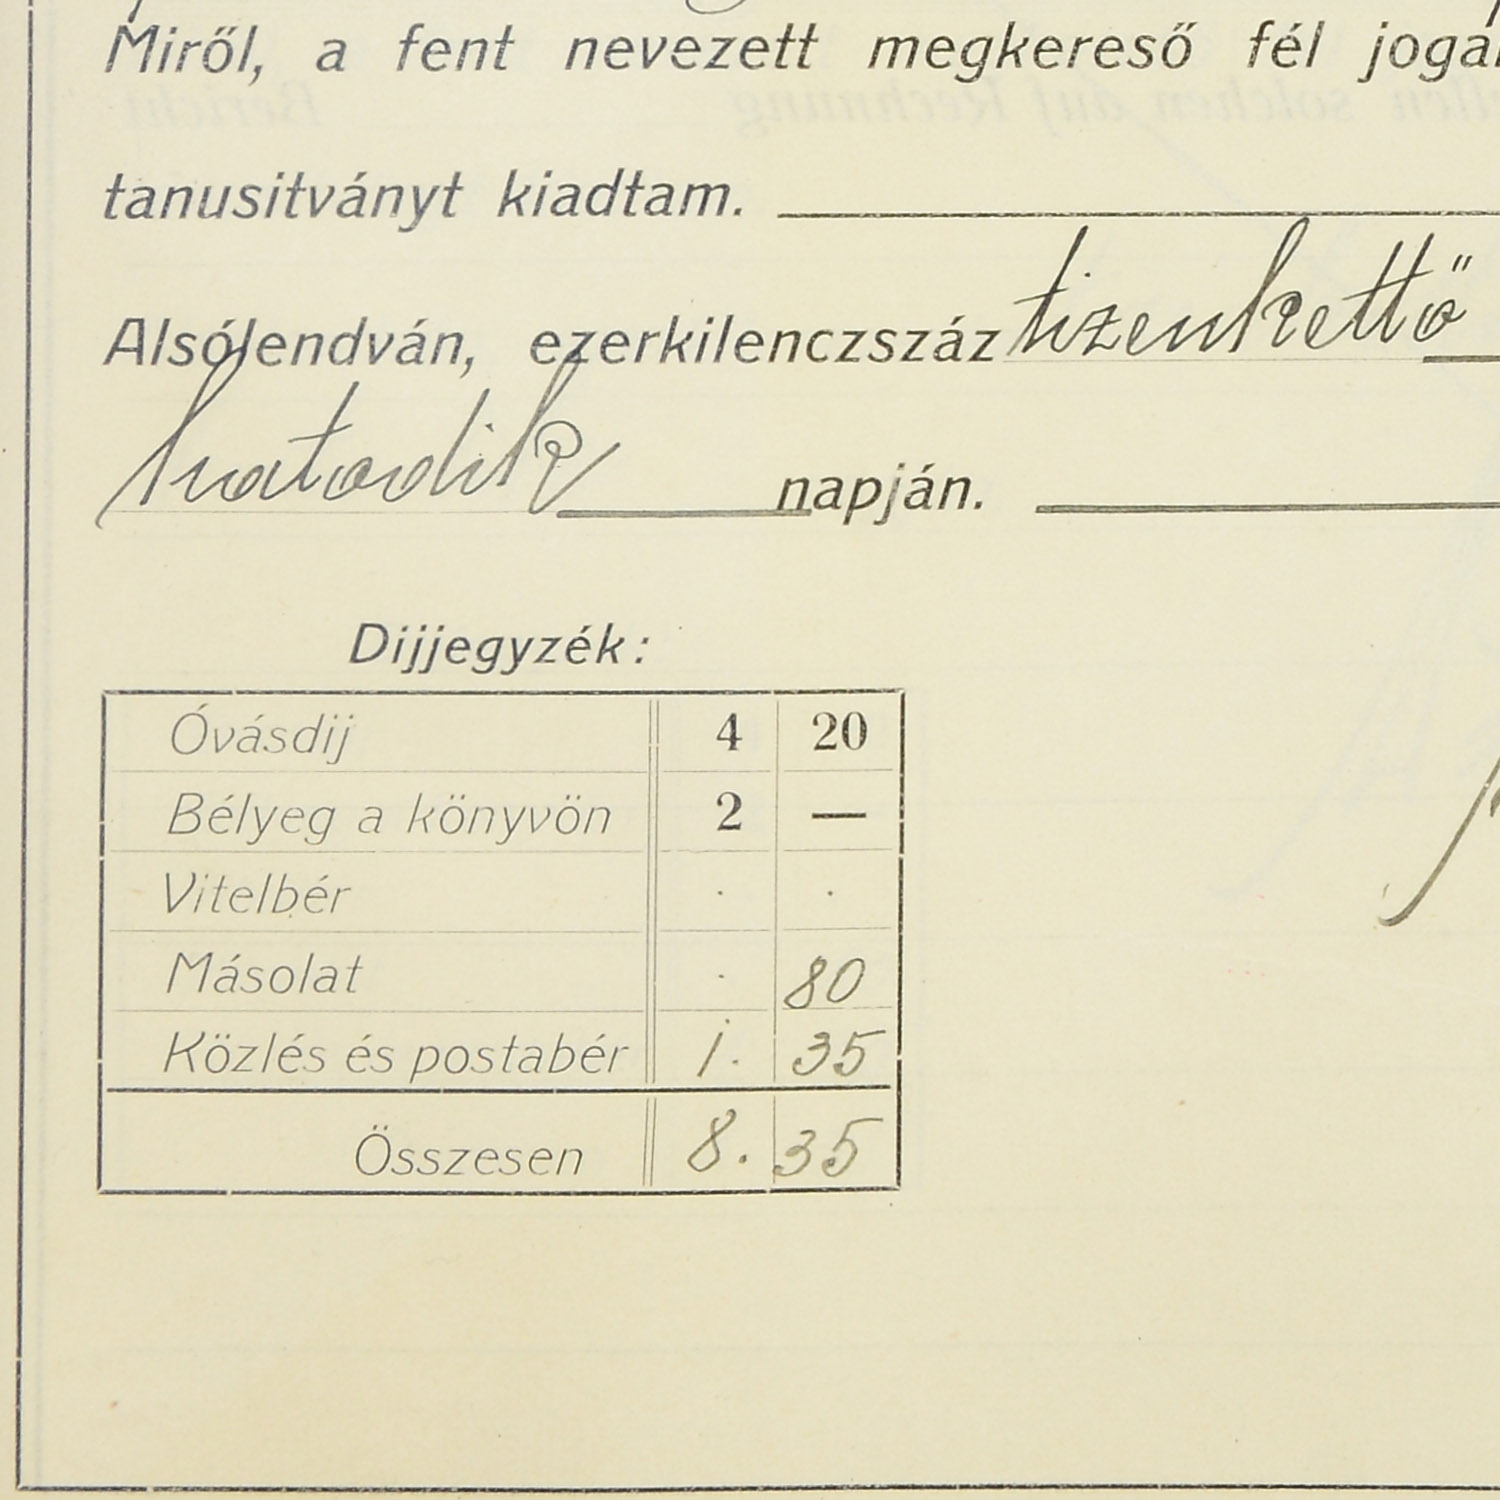 Miről, a fent nevezett megkereső fél
tanusitványt kiadtam.
Alsólendván, ezerkilenczszáz tizenkettő
hatodik napján.
Dijjegyzék:
Óvásdij 4 20
Bélyeg a könyvön 2 —
Vitelbér . .
Másolat . 80
Közlés és postabér 1. 35
Összesen 8. 35